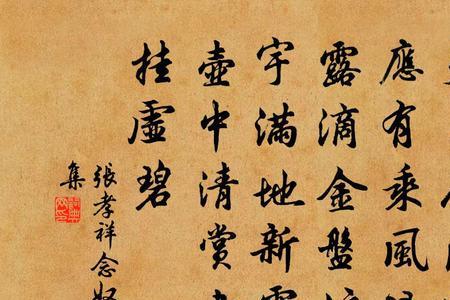 應有乘風
露滴金盤
宇滿地新
壺中清賞
挂虛碧
張孝祥念
集